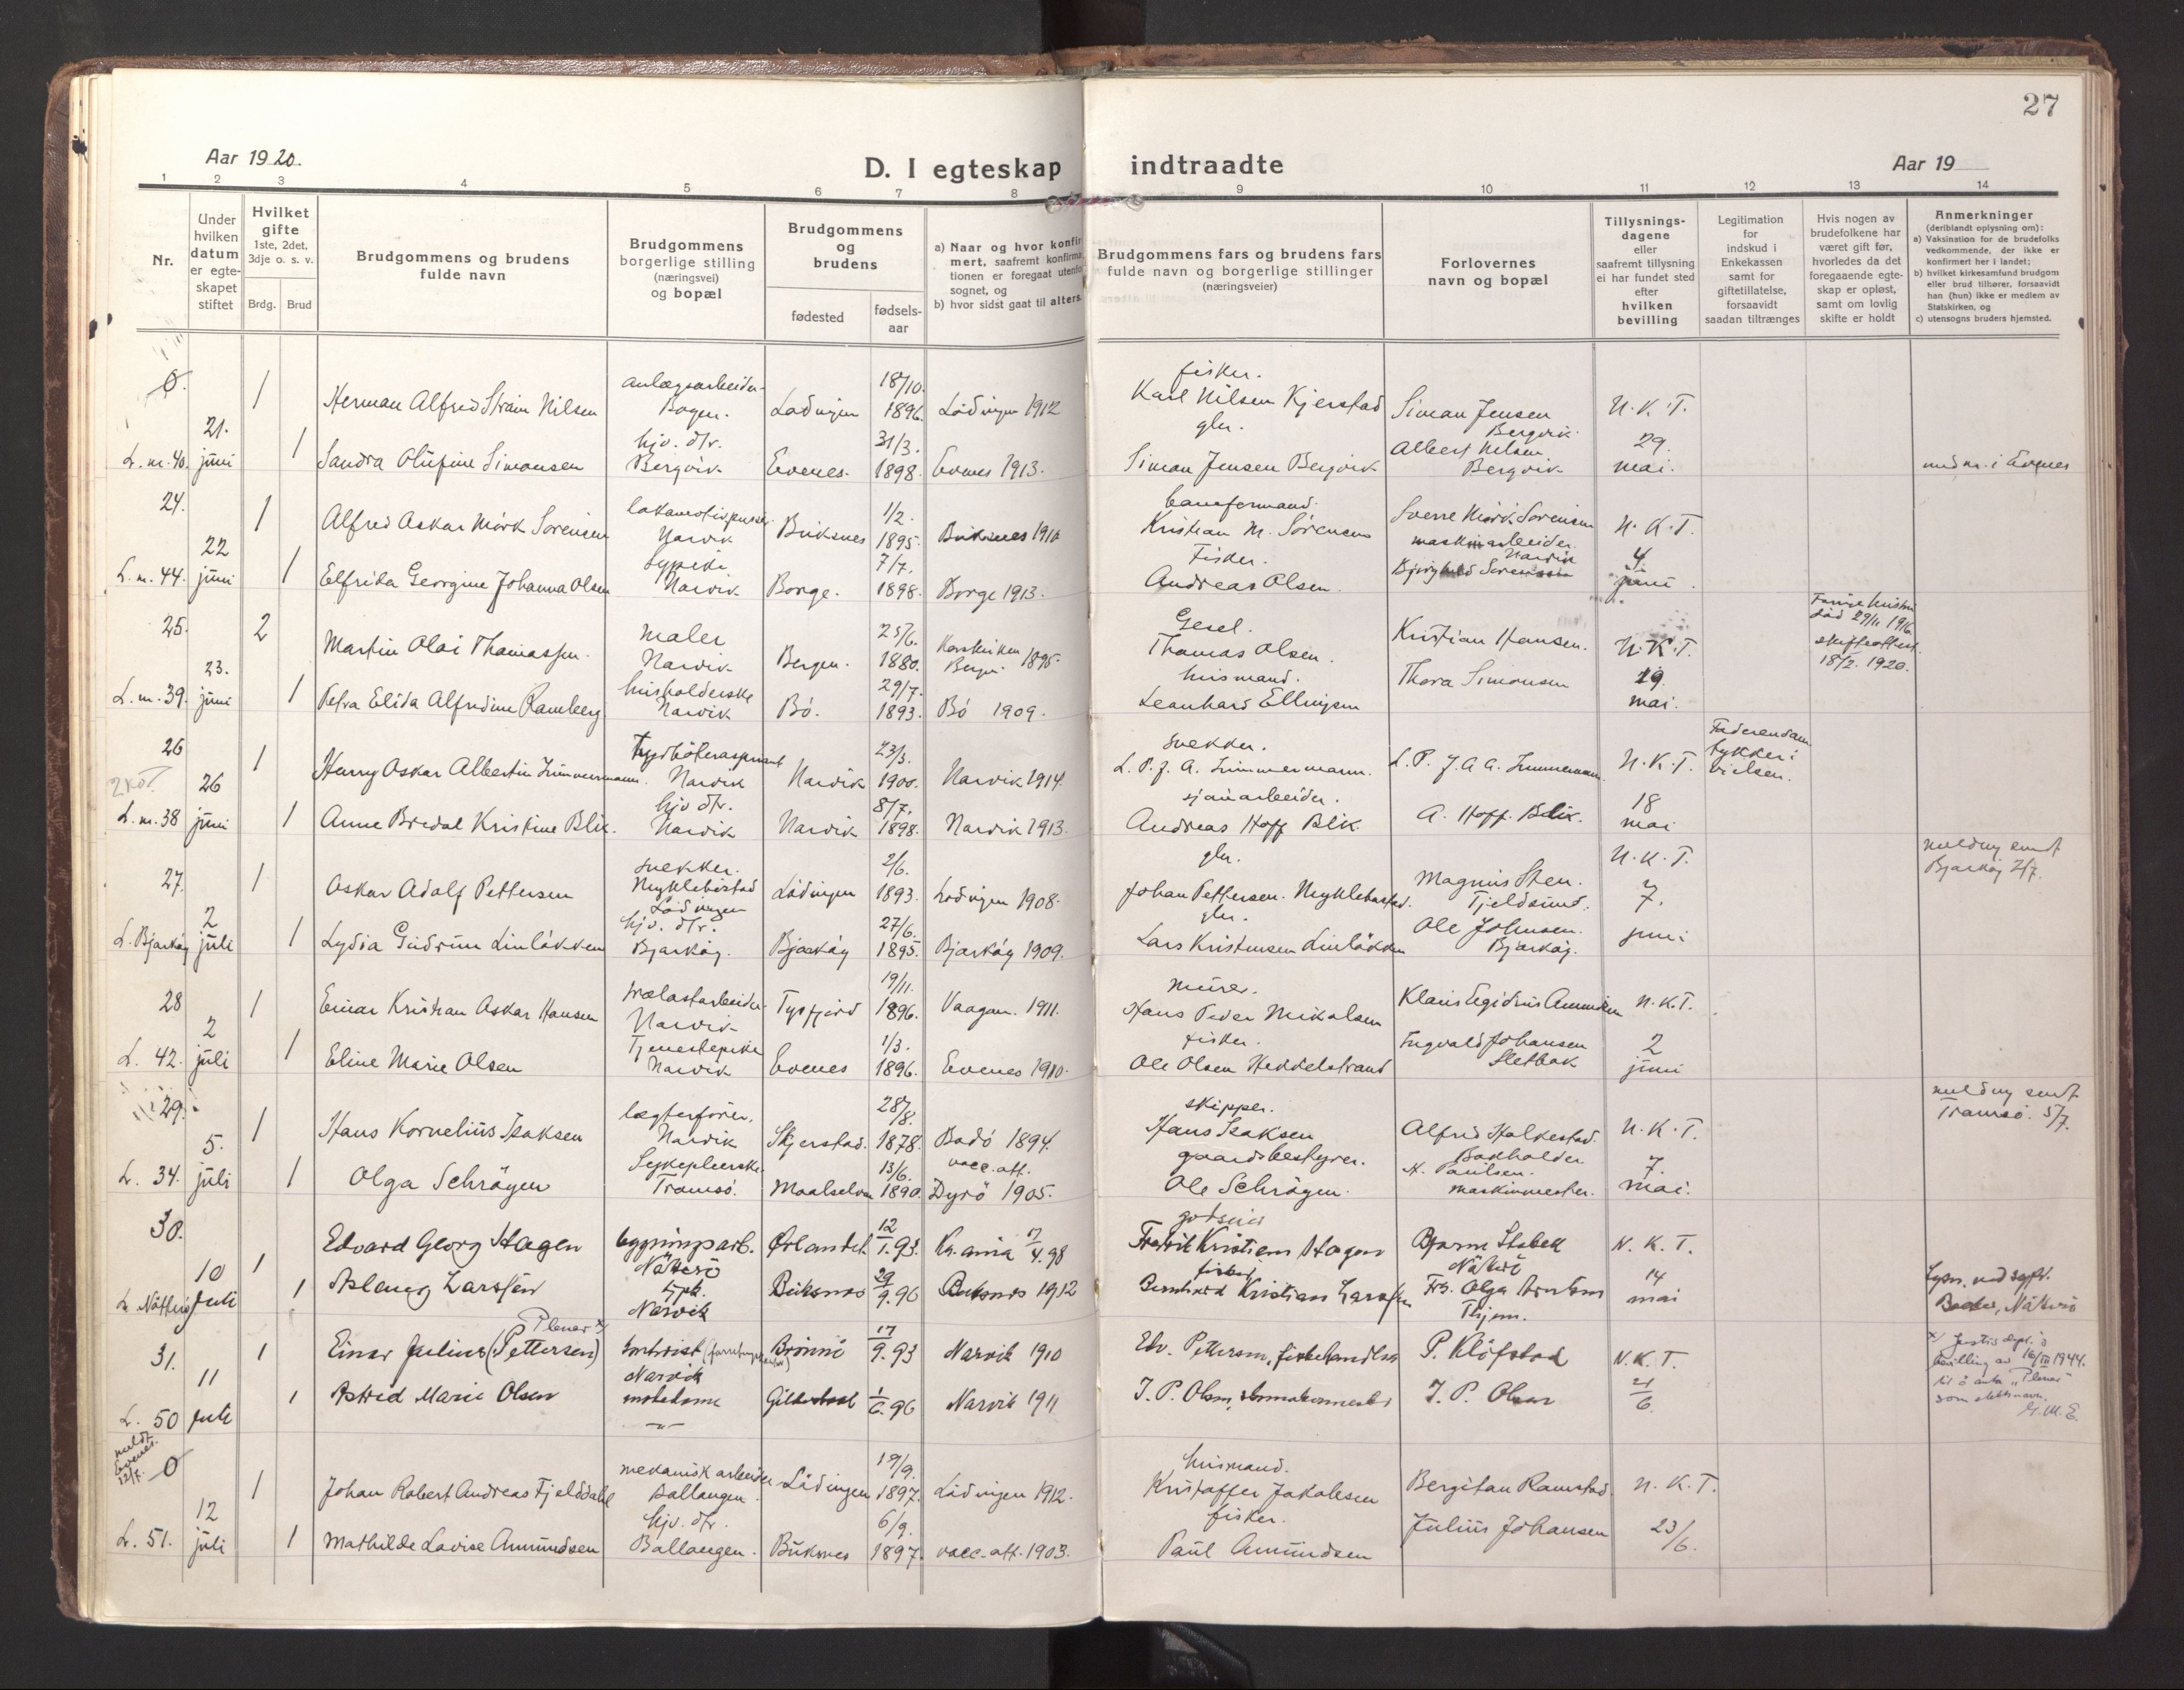 27
Aar 1920.
D. I egteskap indtraadte
Aar 19
1 2 3 4 5 6 7 8 9 10 11 12 13 14
Nr.
Under hvilken datum er egteskapet stiftet
Hvilket gifte 1ste, 2det, 3dje o. s. v.
Brdg. Brud
Brudgommens og brudens fulde navn
Brudgommens borgerlige stilling (næringsvei) og bopæl
Brudgommens og brudens
fødested
fødselsaar
a) Naar og hvor konfirmert, saafremt konfirmationen er foregaat utenfor sognet, og
b) hvor sidst gaat til alters.
Brudgommens fars og brudens fars fulde navn og borgerlige stillinger (næringsveier)
Forlovernes navn og bopæl
Tillysningsdagene eller saafremt tillysning ei har fundet sted efter hvilken bevilling
Legitimation for indskud i Enkekassen samt for giftetillatelse, forsaavidt saadan tiltrænges
Hvis nogen av brudefolkene har været gift før, hvorledes da det foregaaende egteskap er opløst, samt om lovlig skifte er holdt
Anmerkninger (deriblandt oplysning om):
a) Vaksination for de brudefolks vedkommende, der ikke er konfirmert her i landet;
b) hvilket kirkesamfund brudgom eller brud tilhører, forsaavidt han (hun) ikke er medlem av Statskirken, og
c) utensogns bruders hjemsted.
0. 1 Herman Alfred Strøm Nilsen anlægsarbeider Bogen. Lødingen 18/10. 1896. Lødingen 1912 fisker. Karl Nilsen Kjerstad Simon Jensen Bergvik N. K. T.
L. nr. 40. 21. juni 1 Sandra Olufine Simonsen hjv. dtr. Bergvik Evenes. 31/3. 1898. Evenes 1913. gbr. Simon Jensen Bergvik Albert Nilsen Bergvik 29. mai. med nr. i Evenes
24. 1 Alfred Oskar Mørk Sørensen lokomotivpusser Narvik Buksnes 1/2. 1895. Buksnes 1910 baneformand. Kristian M. Sørensen Sverre Mørk Sørensen maskinarbeider. Narvik N. K. T.
L. nr. 44. 22 juni 1 Elfrida Georgine Johanna Olsen sypike Narvik Borge. 7/7. 1898. Borge 1913. Fisker. Andreas Olsen. 4. juni
25. 2 Martin Olai Thomassen. maler Narvik Bergen. 25/6. 1880. Korskirken Bergen 1895. Gesel. Thomas Olsen. Kristian Hansen. N. K. T. død 29/11 1916. skifteattest. 18/2. 1920.
L. nr. 39. 23. juni 1 Petra Elida Alfredine Ramberg husholderske Narvik Bø. 29/7. 1893. Bø 1909. husmand. Leonhard Ellingsen Thora Simonsen 19. mai.
26 1 Harry Oskar Albertin Zimmermann. Narvik Narvik 23/3. 1900. Narvik 1914. snekker. L. P. J. A. Zimmermann. L. P. J. A. A. Zimmermann. N. K. T. Faderen samtykker i vielsen.
L. nr. 38 26 juni 1 Anne Bredal Kristine Blix. hjv dtr. Narvik Narvik 8/7. 1898. Narvik 1913. sjauarbeider. Andreas Hoff Blix. A. Hoff. Blix. 18 mai
27. 1 Oskar Adolf Pettersen snekker. Myklebostad Lødingen Lødingen 2/6. 1893. Lødingen 1908. gbr. Johan Pettersen. Myklebostad. Magnus Sten. Tjeldsund. N. K. T. 7. melding sendt Bjarkøy 2/7.
L. Bjarkøy 2 juli 1 Lydia Gudrun Linløkken hjv. dtr. Bjarkøy. Bjarkøy 27/6. 1895. Bjarkøy 1909. gbr. Lars Kristensen Linløkken Ole Johnsen. Bjarkøy. juni
28 1 Einar Kristian Oskar Hansen malastarbeider. Narvik Tysfjord 19/11. 1896. Vaagan. 1911. murer. Hans Peder Mikalsen Klaus Egidius Amundsen N. K. T.
L. 42. 2 juli 1 Eline Marie Olsen Tjenestepike Narvik Evenes 1/3. 1896. Evenes 1910. fisker. Ole Olsen Heddelstrand Ingvald Johansen Sletbak 2 juni
29. 1 Hans Kornelius Isaksen lægterfører. Narvik Skjerstad. 28/8. 1878. Bodø 1894. skipper. Hans Isaksen Alfred Halkestad. Bokholder N. K. T. melding sendt Tromsø. 5/7.
L. 34. 5. juli 1 Olga Schrøgen Sykepleierske Tromsø. Maalselven 13/6. 1890. vacc. att. Dyrø 1905. gaardsbestyrer. Ole Schrøgen. K. Paulsen. maskinmester. 7. mai.
30. 1 Edvard Georg Hagen bygningsarb. Nøtterø Ørlandet 12/1. 93. Kr.ania 17/4. 98 godseier Fredrik Kristian Hagen Bjarne Stabek Nøtterø N. K. T.
L. Nøtterø 10 Juli 1 Aslaug Larssen sypk. Narvik Buksnes 29/9. 96 Buksnes 1912 fisker Bernhard Kristian Larssen Frk. Olga Tjøm. 14 mai
31. 1 Einar Julius (Pettersen) Plener x) Narvik Brønnø 17/9. 93 Narvik 1910 Edv. Pettersen, fiskehandler P. Kløfstad N. K. T. x/ Justisdept.s bevilling av 16/III 1944. til å anta "Plener" som slektsnavn. G. M. E.
L. 50 11 Juli 1 Astrid Marie Olsen motedame Gildeskaal 1/6. 96 Narvik 1911 J. P. Olsen, skomakermester J. P. Olsen 21/6.
meldt Evenes. 12/7. 0 1 Johan Robert Andreas Fjelddahl mekanisk arbeider Ballangen. Lødingen 19/9. 1897. Lødingen 1912. husmand. Kristoffer Jakobsen Bergitan Ramstad. N. K. T.
L. 51. 12 juli 1 Mathilde Lovise Amundsen hjv. dtr. Ballangen. Buksnes 6/9. 1897. vacc. att. 1903. fisker. Paul Amundsen Julius Johansen 23/6.